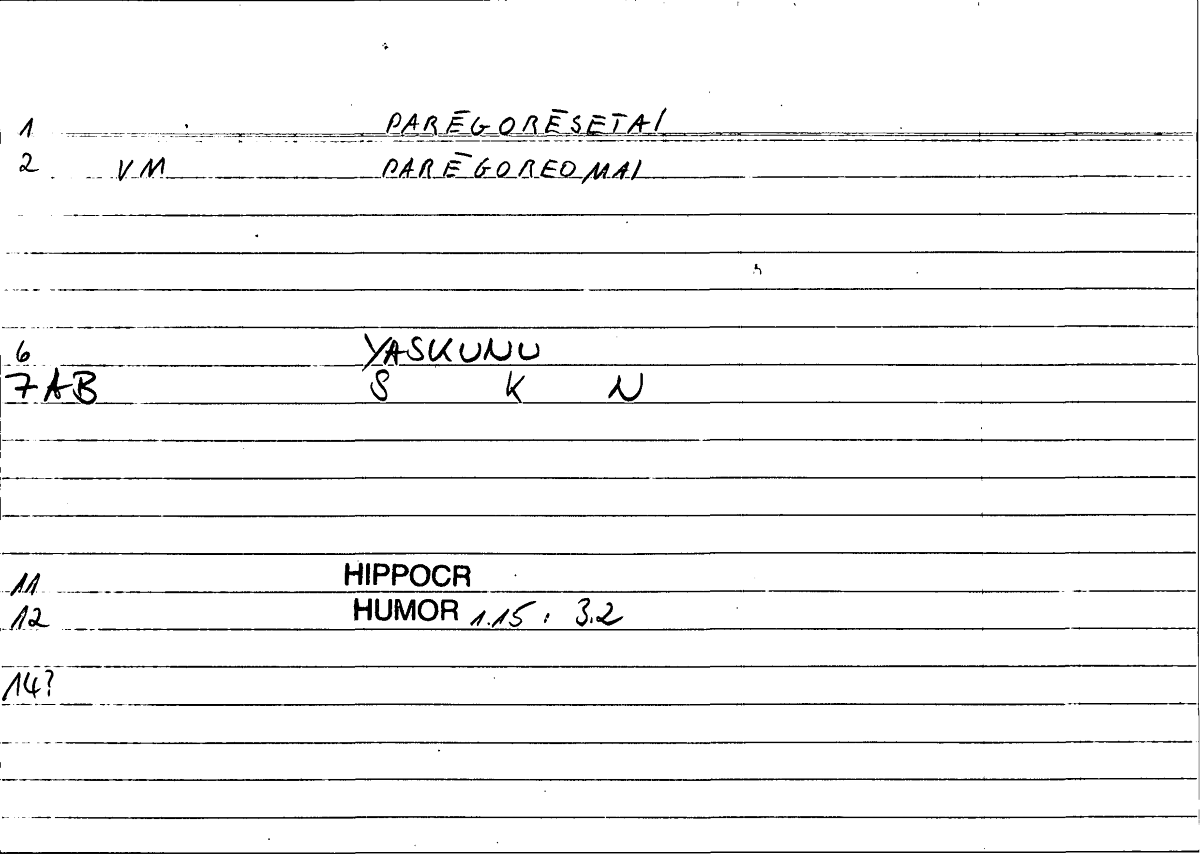 1 PARĒGORĒSETAI
2 VM PARĒGOREOMAI
6 YASKUNU
7AB S K N
11 HIPPOCR
12 HUMOR 1.15 : 3.2
14?